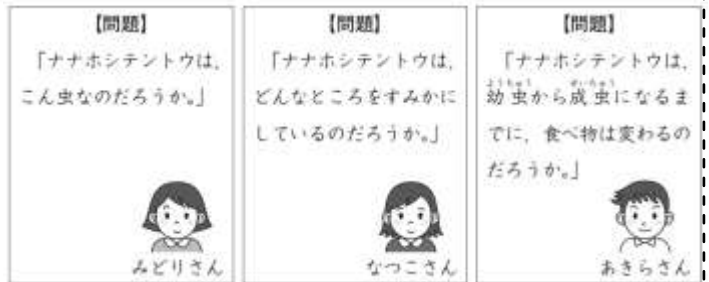 【問題】
「ナナホシテントウは,
こん虫なのだろうか。」
みどりさん
【問題】
「ナナホシテントウは,
どんなところをすみかに
しているのだろうか。」
なつこさん
【問題】
「ナナホシテントウは,
ようちゅう せいちゅう
幼虫から成虫になるま
でに, 食べ物は変わるの
だろうか。」
あきらさん